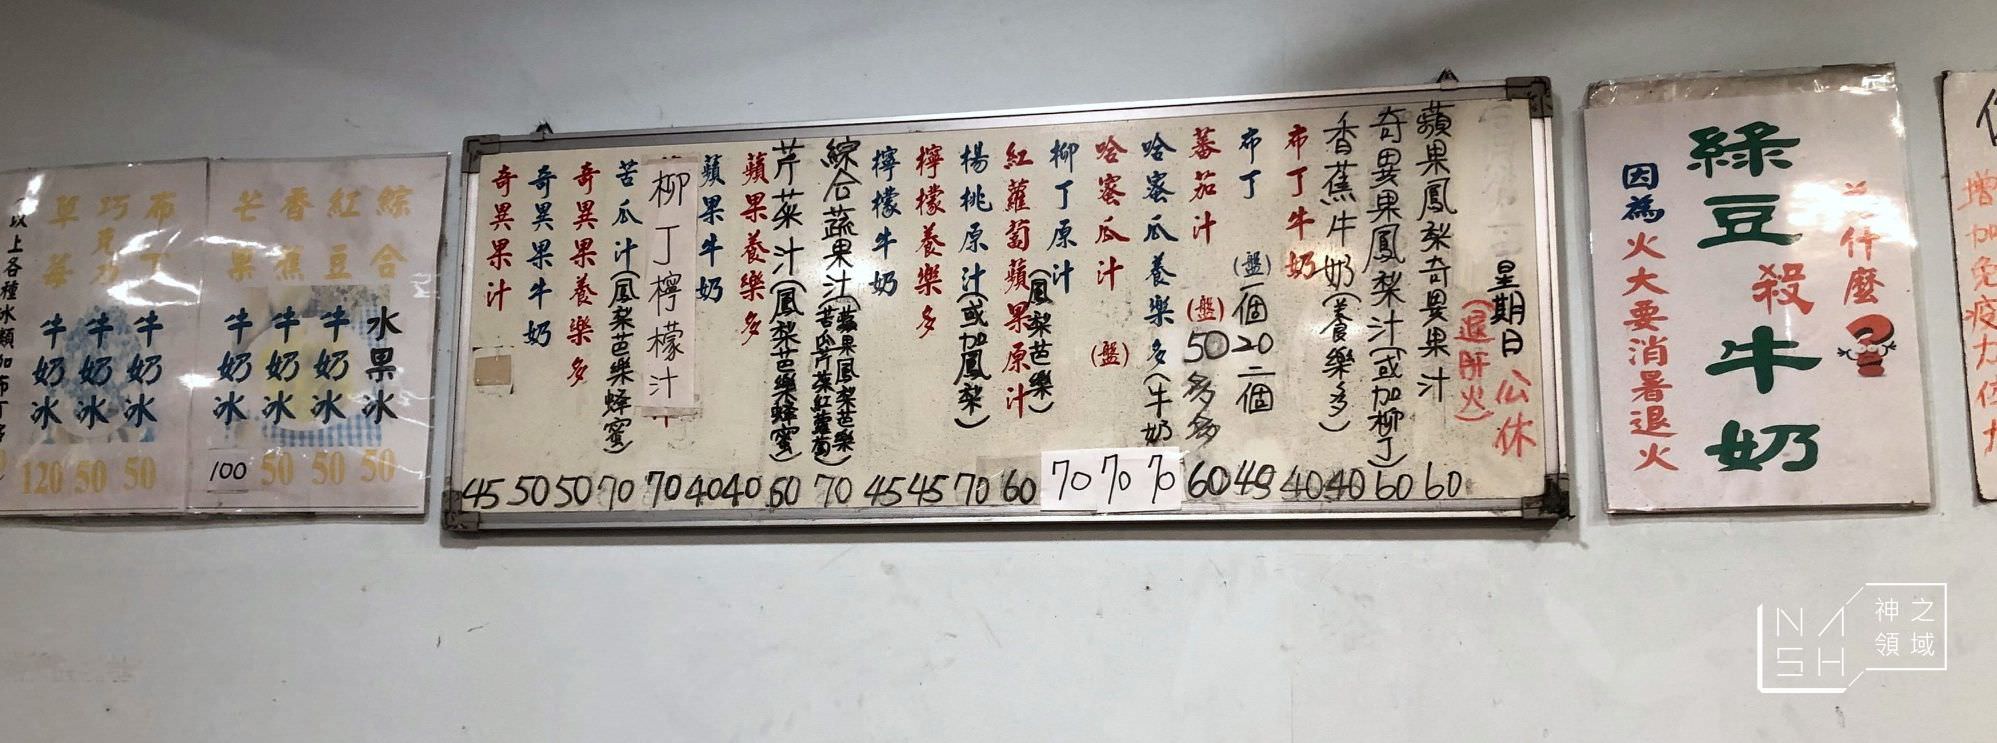 什麼?
綠豆殺牛奶
因為火大要消暑退火
增加免疫力
星期日公休
(退肝火)
蘋果鳳梨奇異果汁 60
奇異果鳳梨汁(或加柳丁) 60
香蕉牛奶(養樂多) 40
布丁牛奶 40
布丁(盤)一個20二個
蕃茄汁(盤)50 60
哈蜜瓜養樂多(牛奶 70
哈蜜瓜汁(盤) 70
柳丁原汁 70
紅蘿蔔蘋果原汁(鳳梨芭樂) 60
楊桃原汁(或加鳳梨) 70
檸檬養樂多 45
檸檬牛奶 45
綜合蔬果汁(蘋果鳳梨芭樂苦瓜芹菜紅蘿蔔) 70
芹菜汁(鳳梨芭樂蜂蜜) 60
蘋果養樂多 40
蘋果牛奶 40
柳丁檸檬汁 70
苦瓜汁(鳳梨芭樂蜂蜜) 70
奇異果養樂多 50
奇異果牛奶 50
奇異果汁 45
綜合水果冰 50
紅豆牛奶冰 50
香蕉牛奶冰 50
芒果牛奶冰 100
布丁牛奶冰 50
巧克力牛奶冰 50
草莓牛奶冰 120
以上各種冰類加布丁
NASH
神之領域